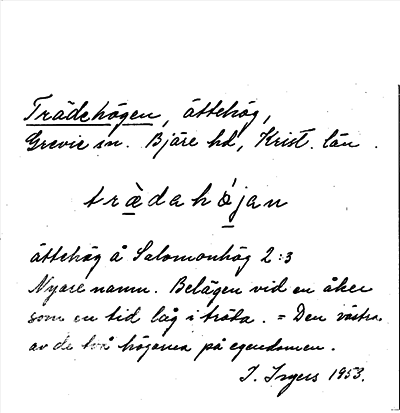 Trädehögen, ättehög,
Grevie sn. Bjäre hd, Krist. län.
trädahöjan
ättehög å Salomonhög 2:3
Nyare namn. Belägen vid en åker
som en tid låg i träda. = Den västra
av de två högarna på egendomen.
I. Ingers 1953.